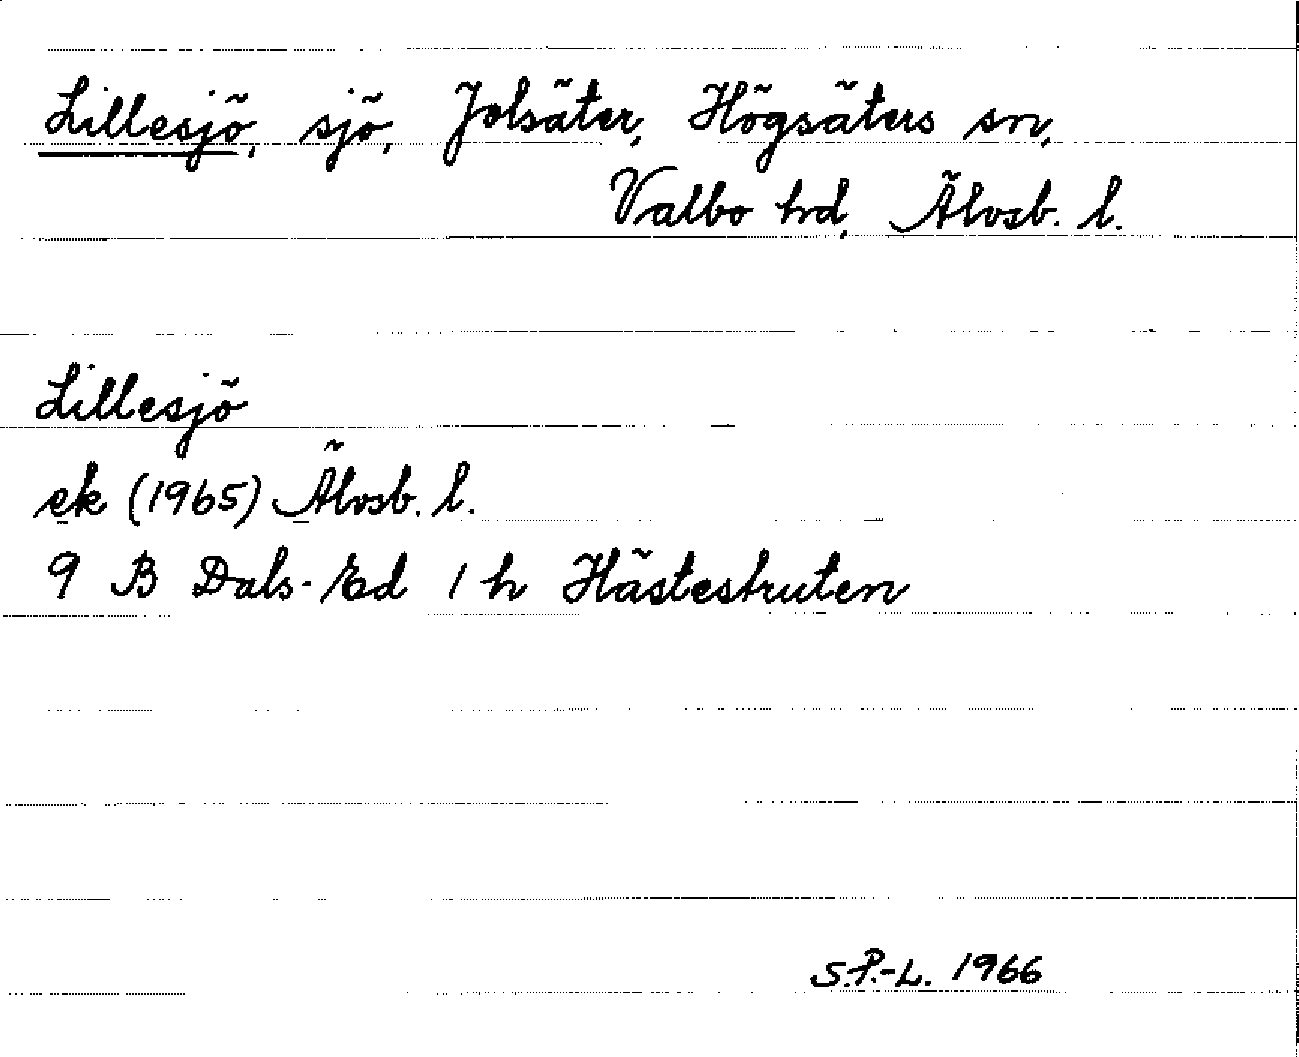 Lillesjö, sjö, Jolsäter, Högsäters sn,
Valbo hd, Älvsb. l.
Lillesjö
ek (1965) Älvsb. l.
9 B Dals-Ed 1 h Hästeskruten
S.P.-L. 1966